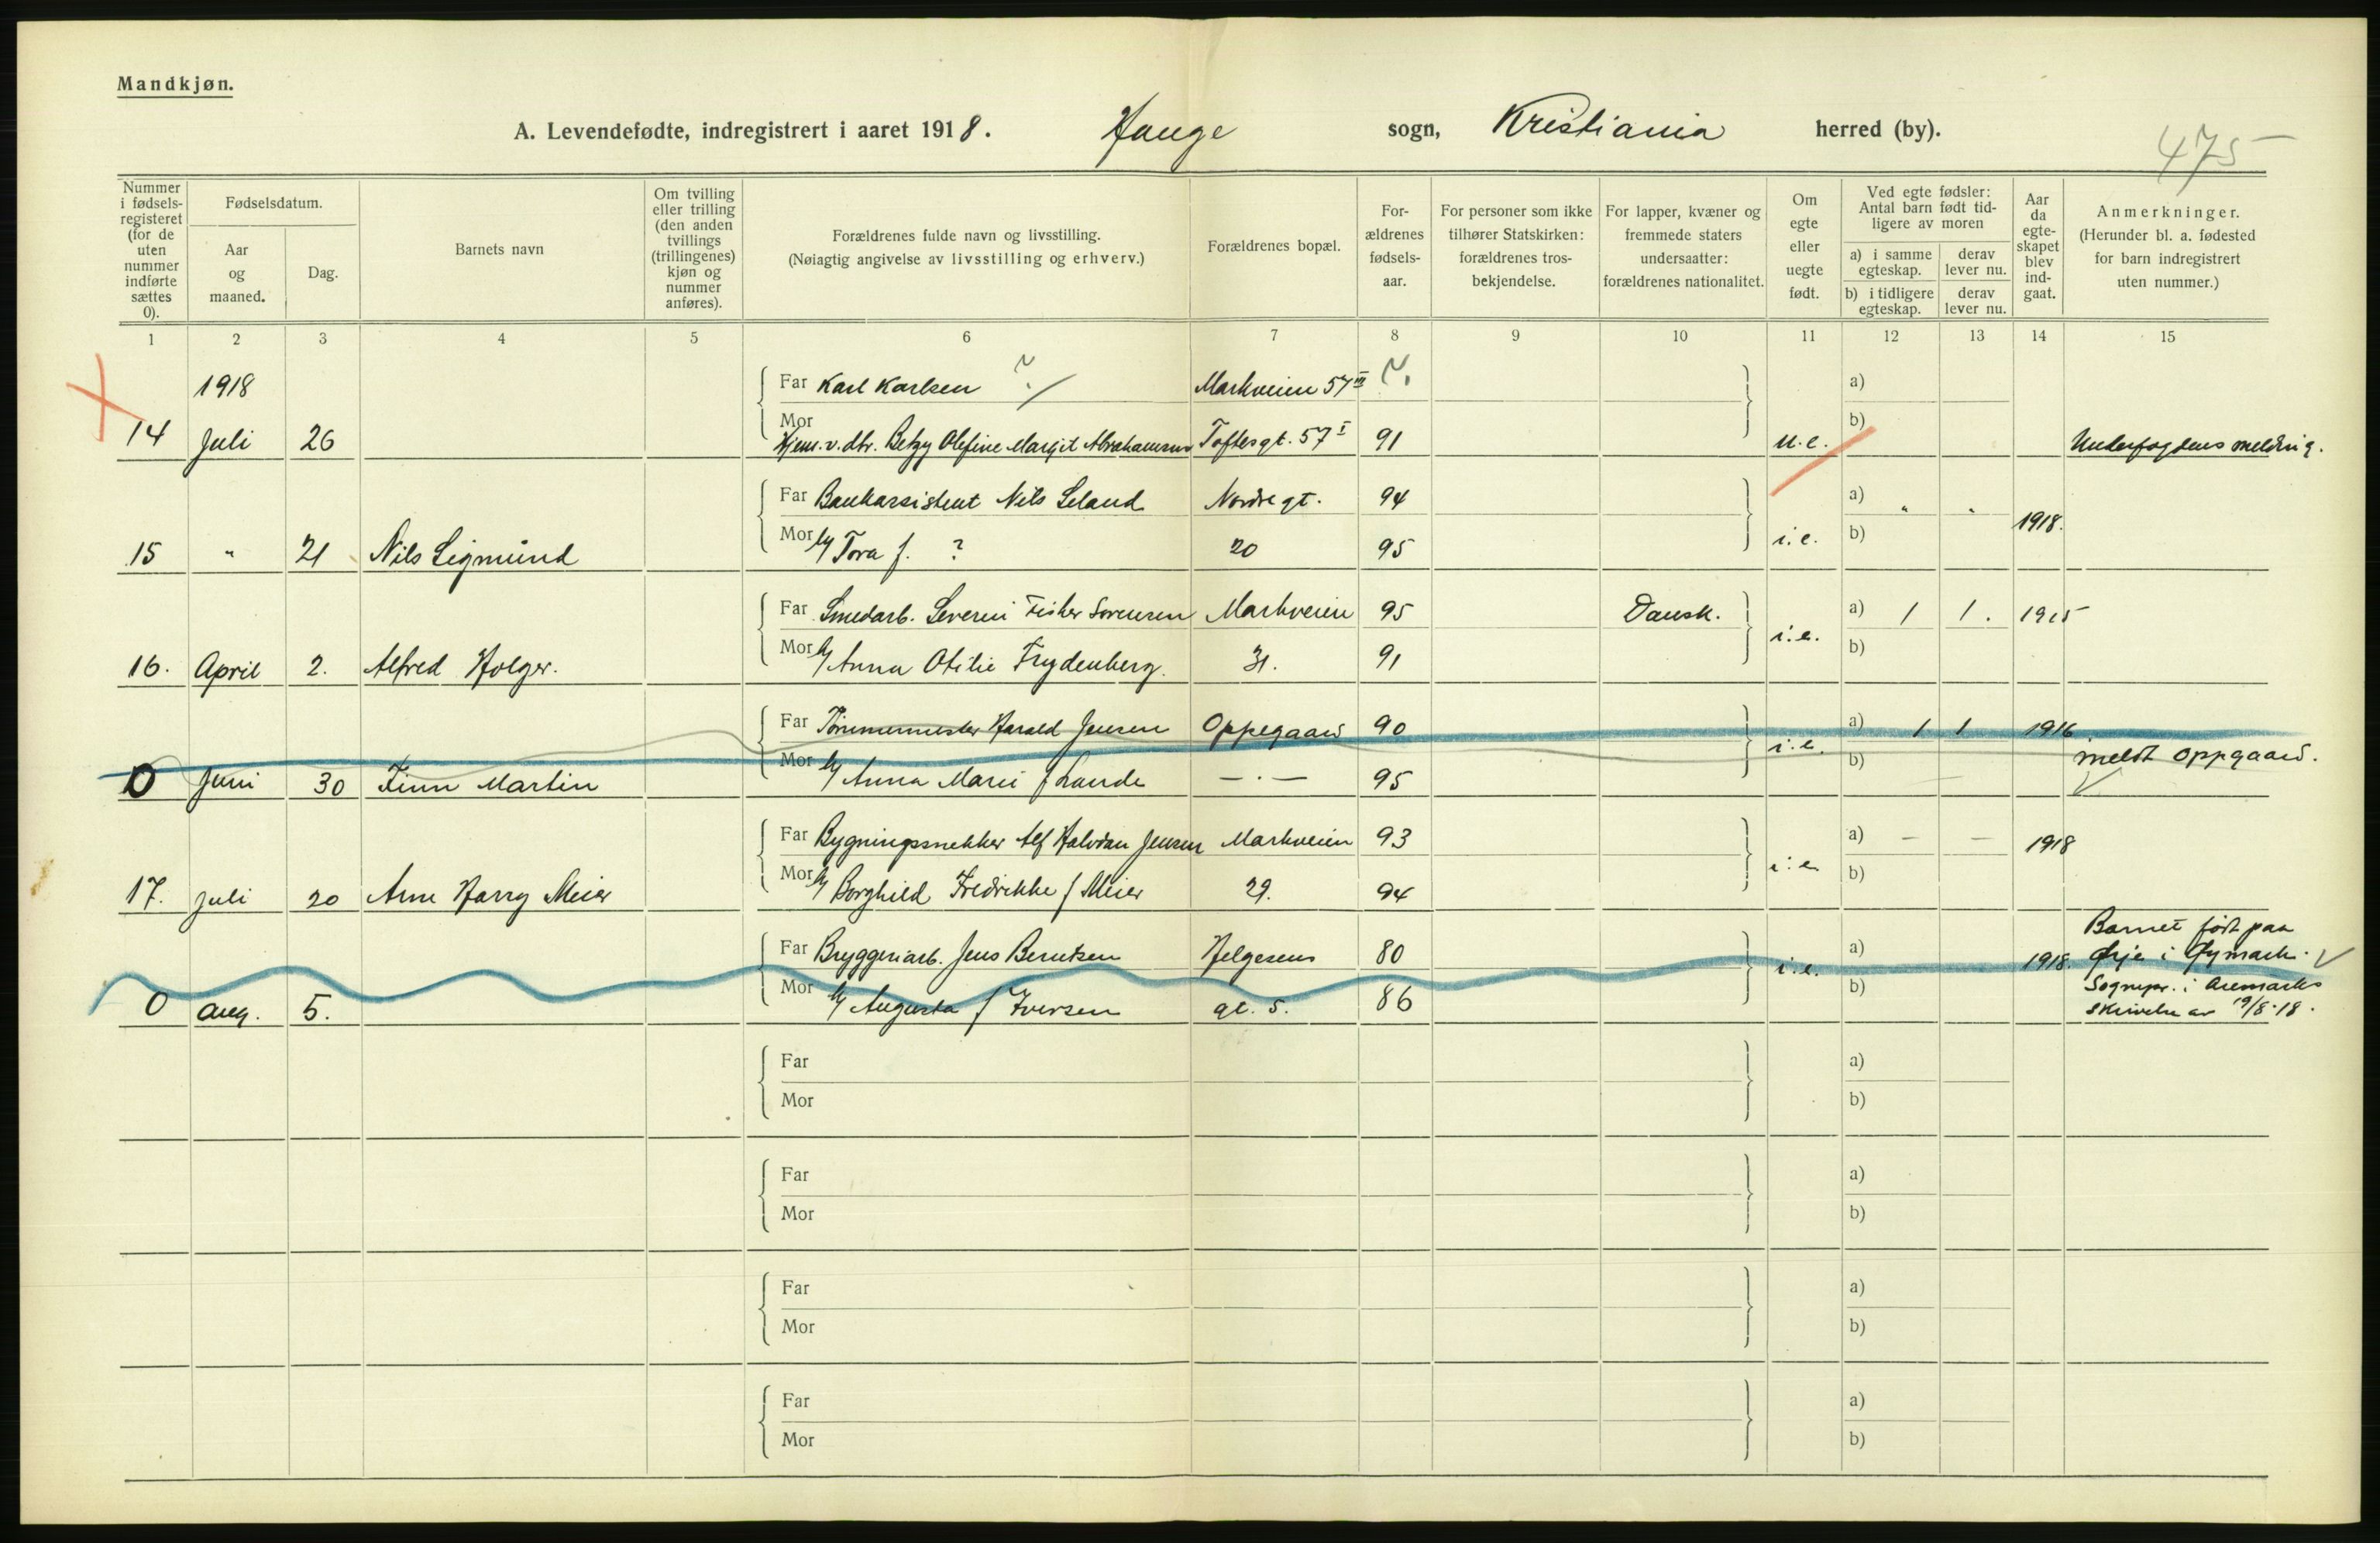 Mandkjøn.
A. Levendefødte, indregistrert i aaret 1918. Hauge sogn, Kristiania herred (by).
475
Nummer i fødsels-registeret (for de uten nummer indførte sættes 0).
Fødselsdatum.
Aar og maaned.
Dag.
Barnets navn
Om tvilling eller trilling (den anden tvillings (trillingenes) kjøn og nummer anføres).
Forældrenes fulde navn og livsstilling.
(Nøiagtig angivelse av livsstilling og erhverv.)
Forældrenes bopæl.
For-ældrenes fødsels-aar.
For personer som ikke tilhører Statskirken: forældrenes tros-bekjendelse.
For lapper, kvæner og fremmede staters undersaatter: forældrenes nationalitet.
Om egte eller uegte født.
Ved egte fødsler: Antal barn født tid-ligere av moren
a) i samme egteskap. derav lever nu.
b) i tidligere egteskap. derav lever nu.
Aar da egte-skapet blev ind-gaat.
Anmerkninger.
(Herunder bl. a. fødested for barn indregistrert uten nummer.)
1 2 3 4 5 6 7 8 9 10 11 12 13 14 15
1918 Far Karl Karlsen ? Markveien 57 III ? a)
14 Juli 26 Mor Hjem. v. dtr. Betzy Olefine Margit Abrahamsen Toftesgt. 57 I 91 u.e. b) Underfogdens melding.
Far Bankassistent Nils Leland Nordregt. 94 a) " " 1918.
15 " 21 Nils Sigmund Mor h/ Tora f. ? 20 95 i.e. b)
Far Smedarb. Severin Fisker Sørensen Markveien 95 Dansk. a) 1 1. 1915
16. April 2. Alfred Holger. Mor h/ Anna Otilie Frydenberg. 31. 91 i.e. b)
Far Tømmermester Harald Jensen Oppegaard 90 a) 1 1 1916
0 Juni 30 Finn Martin Mor h/ Anna Marie f Lande — · — 95 i.e. b) meldt Oppgaard.
Far Bygningssnekker Alf Halvdan Jensen Markveien 93 a) — — 1918
17. Juli 20 Arne Harry Meier Mor h/ Borghild Fredrikke f Meier 29. 94 i.e. b)
Far Bryggeriarb. Jens Berntsen Helgesens 80 a) 1918. Barnet født paa Ørje i Øymark.
0 Aug. 5. Mor h/ Augusta f Iversen gt. 5. 86 i.e. b) Sognepr. i Aremarks skrivelse av 19/8-18.
Far a)
Mor b)
Far a)
Mor b)
Far a)
Mor b)
Far a)
Mor b)